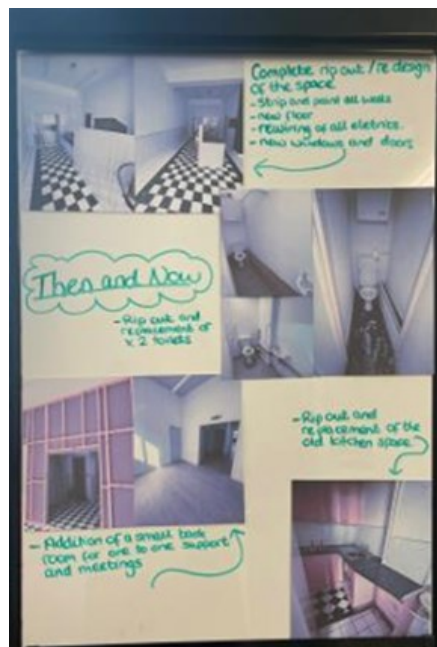 Complete rip out / re design
of the space
- Strip and paint all walls
- new floor
- rewiring of all eletrics.
- new windows and doors
Then and Now
- Rip out and
replacement of
x 2 toilets
- Rip out and
replacement of the
old kitchen space
- Addition of a small back
room for one to one support
and meetings